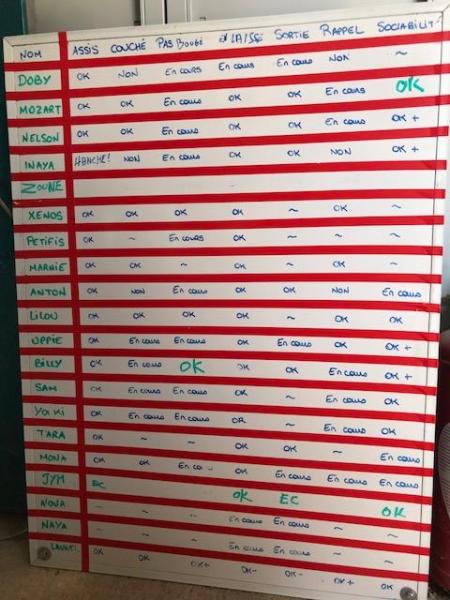 NOM ASSIS COUCHÉ PAS BOUGÉ LAISSE SORTIE RAPPEL SOCIABILIT
DOBY OK NON En cours En cours En cours NON ~
MOZART OK OK En cours OK OK En cours OK
NELSON OK OK En cours OK OK En cours OK +
INAYA HANCHE! NON En cours OK OK NON OK +
ZOUNE
XENOS OK OK OK OK ~ OK ~
PETIFIS OK ~ En cours OK ~ ~ ~
MARNIE OK OK ~ OK ~ OK ~
ANTON OK NON En cours OK OK NON En cours
LILOU OK OK OK OK ~ OK OK
UPPIE OK En cours En cours OK En cours OK OK +
BILLY OK En cours OK OK OK En cours OK +
SAM OK En cours En cours OK ~ En cours OK
OK En cours En cours OK ~ En cours OK
TARA OK ~ ~ OK OK ~ En cours
MONA OK OK OK En cours En cours En cours
JYM EC OK EC OK
~ ~ ~ En cours En cours ~ ~
NAYA ~ ~ ~ En cours En cours ~ ~
OK OK OK+ OK- OK- OK+ OK